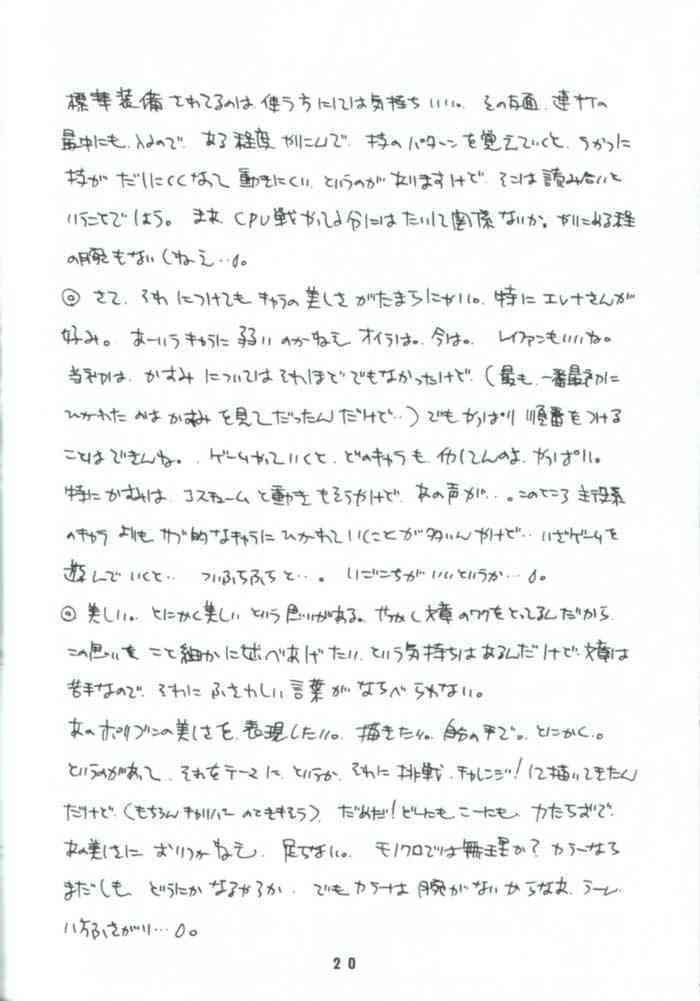 標準装備されてるのは使う方にしては気持ちいい。その反面、連打の
最中にも入るので、ある程度ガムシャラで、技のパターンを覚えていくと、うかつに
技がだしにくくなって動きにくい、というのがありますけど、そこは読み合いと
いうことでしょう。まあ、CPU戦やってる分にはたいして関係ないか。やりこめる程
の腕もないしねえ…。
◎さて、それにつけてもキャラの美しさがたまらにゃい。特にエレナさんが
好み。あーいうキャラに弱いのかねえオイラは。今は。レイファンもいいね。
当初は、かすみについてはそれほどでもなかったけど、(最も、一番最初に
ひかれたのはかすみを見てだったんだけど…)でもやっぱり順番をつける
ことはできんね。ゲームやっていくと、どのキャラも、イカしてんのよ、やっぱり。
特にかすみは、コスチュームと動きもそうやけど、あの声が…。このところ主役系
のキャラよりも、サブ的なキャラにひかれていくことが多いんやけど…いざゲームを
遊んでいくと…ついふらふらと…。いごこちがいいというか…。
◎美しい。とにかく美しいという思いがある。せっかく文章のワクをとってるんだから、
この思いをこと細かに述べあげたい、という気持ちはあるんだけど文章は
苦手なので、それにふさわしい言葉がならべられない。
あのポリゴンの美しさを、表現したい。描きたい。自分の手で。とにかく。
というのがあって、それをテーマに、というか、それに挑戦、チャレンジ!して描いてきたん
だけど、(もちろん)、だめだ!どーしてもこーしても、力たらずで、
あの美しさにおいつかねえ、足らない。モノクロでは無理か?カラーなら
まだしも、どうにかなるやろか、でもカラーは腕がないからなあ、うーし、
八方ふさがり…。
20